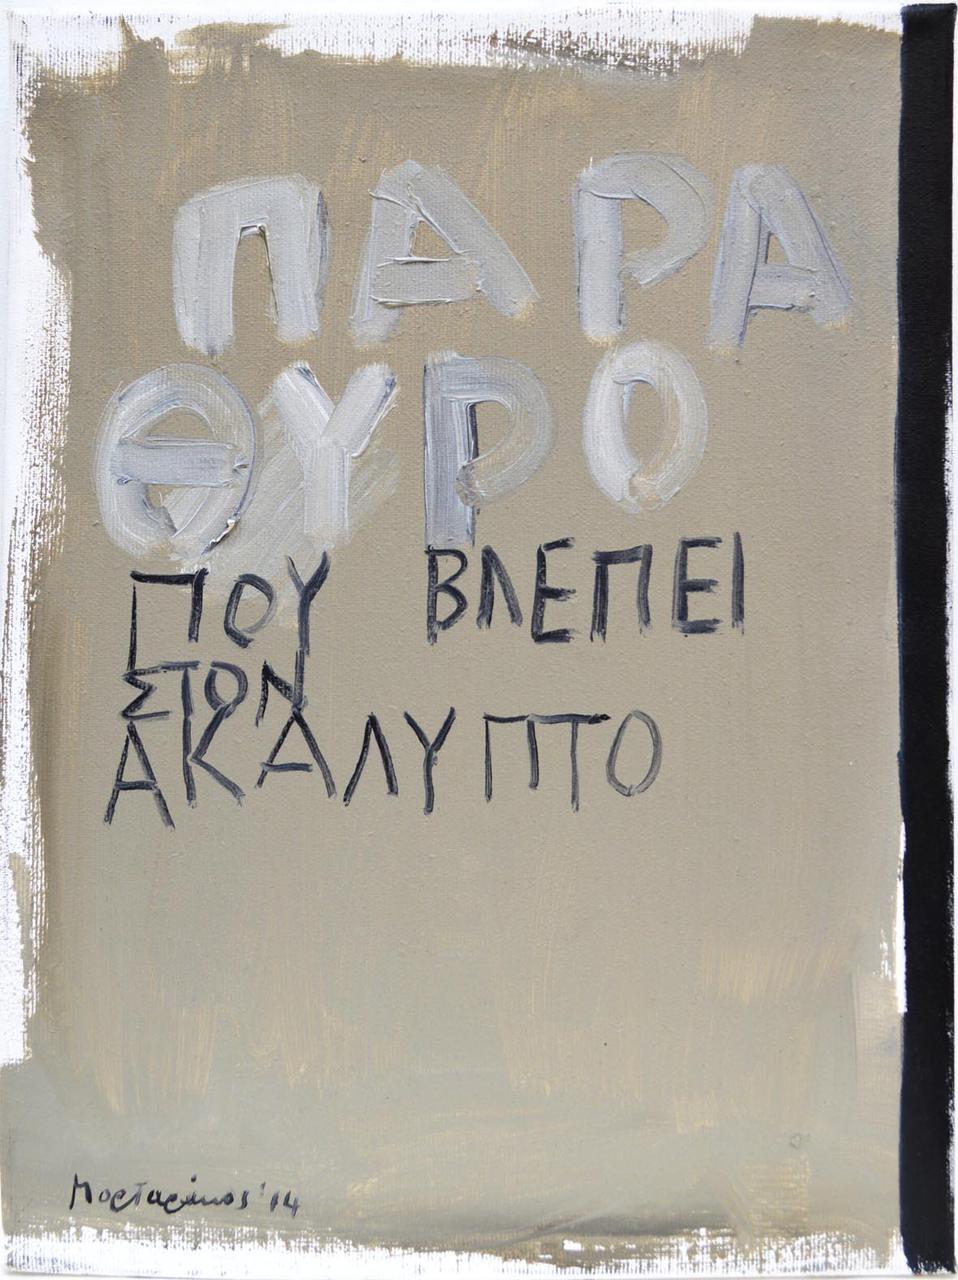 ΠΑΡΑ
ΘΥΡΟ
ΠΟΥ ΒΛΕΠΕΙ
ΣΤΟΝ
ΑΚΑΛΥΠΤΟ
Μορταράκος '14